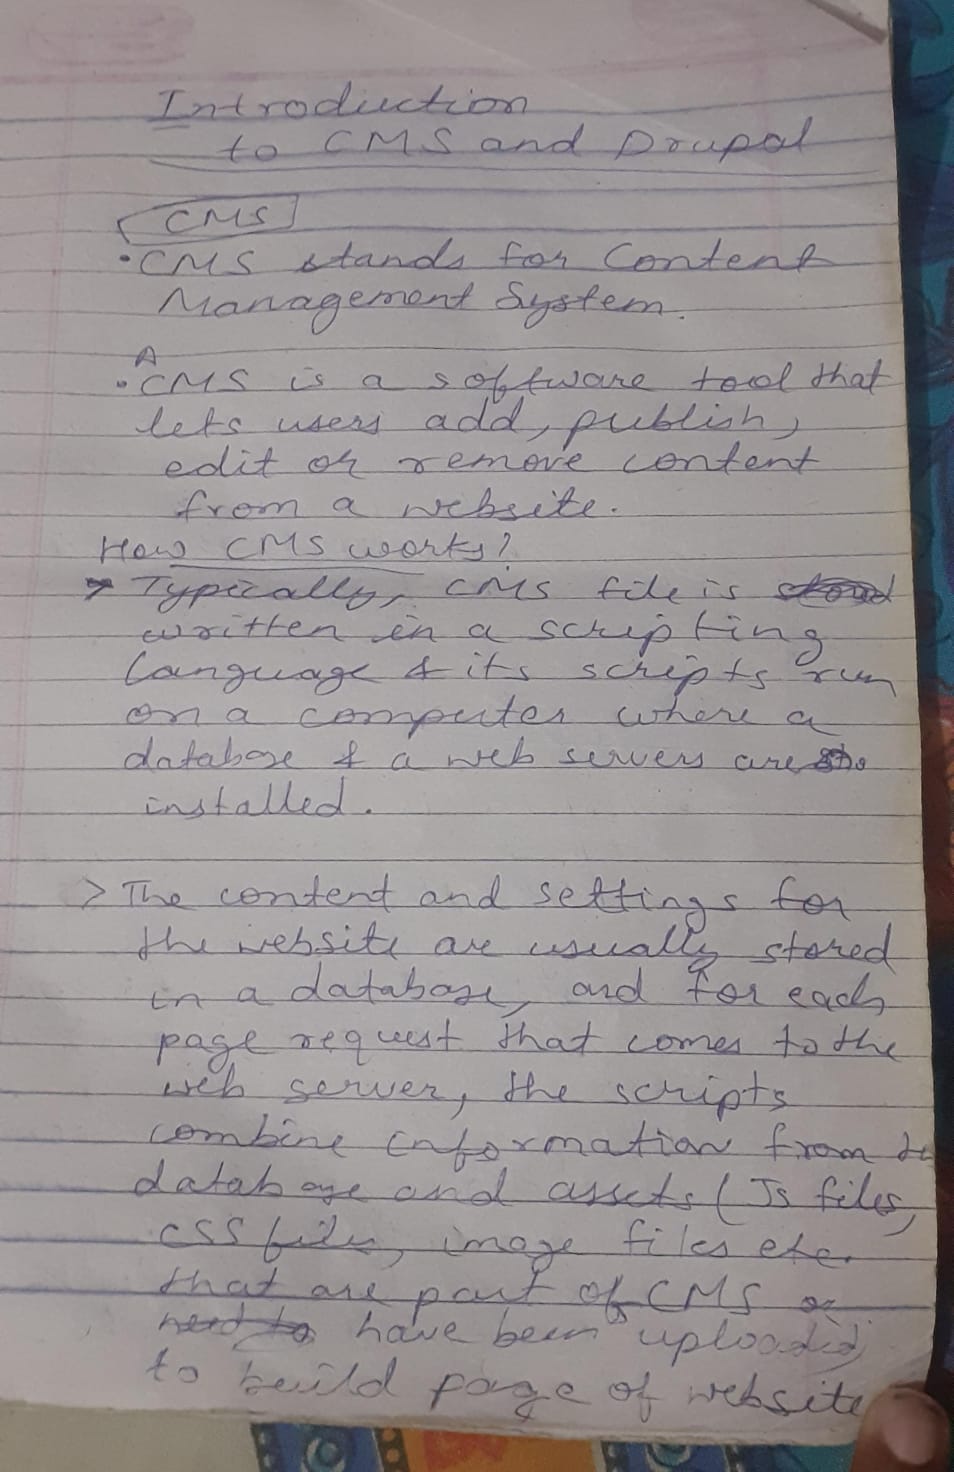 Introduction
to CMS and Drupal
CMS
• CMS stands for Content
Management System.
A
• CMS is a software tool that
lets users add, publish,
edit or remove content
from a website.
How CMS works?
Typically, CMS file is
written in a scripting
language & its scripts run
on a computer where a
database & a web servers are
installed.
> The content and settings for
the website are usually stored
in a database, and for each
page request that comes to the
web server, the scripts
combine information from
database and assets (Js files,
CSS files, image files etc.
that are part of CMS or
have been uploaded)
to build page of website